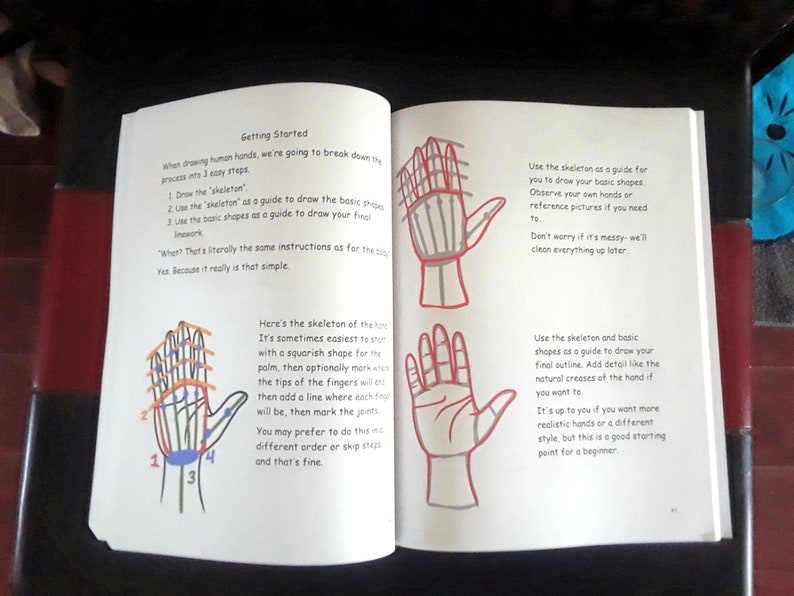 Getting Started
When drawing human hands, we're going to break down the
process into 3 easy steps.
1. Draw the "skeleton".
2. Use the "skeleton" as a guide to draw the basic shapes
3. Use the basic shapes as a guide to draw your final
linework.
"What? That's literally the same instructions as for the body
Yes. Because it really is that simple.
Here's the skeleton of the hand
It's sometimes easiest to start
with a squarish shape for the
palm, then optionally mark where
the tips of the fingers will end,
then add a line where each finger
will be, then mark the joints.
You may prefer to do this in a
different order or skip steps
and that's fine.
2
1
3
4
Use the skeleton as a guide for
you to draw your basic shapes.
Observe your own hands or
reference pictures if you need
to.
Don't worry if it's messy- we'll
clean everything up later.
Use the skeleton and basic
shapes as a guide to draw your
final outline. Add detail like the
natural creases of the hand if
you want to.
It's up to you if you want more
realistic hands or a different
style, but this is a good starting
point for a beginner.